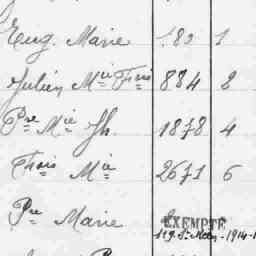 Eug. Marie 182 1
Julien Mie Frois 884 2
Pre Mie Jh. 1878 4
Frois Mie 2671 6
Pre Marie EXEMPTÉ
St Méen - 1914-1